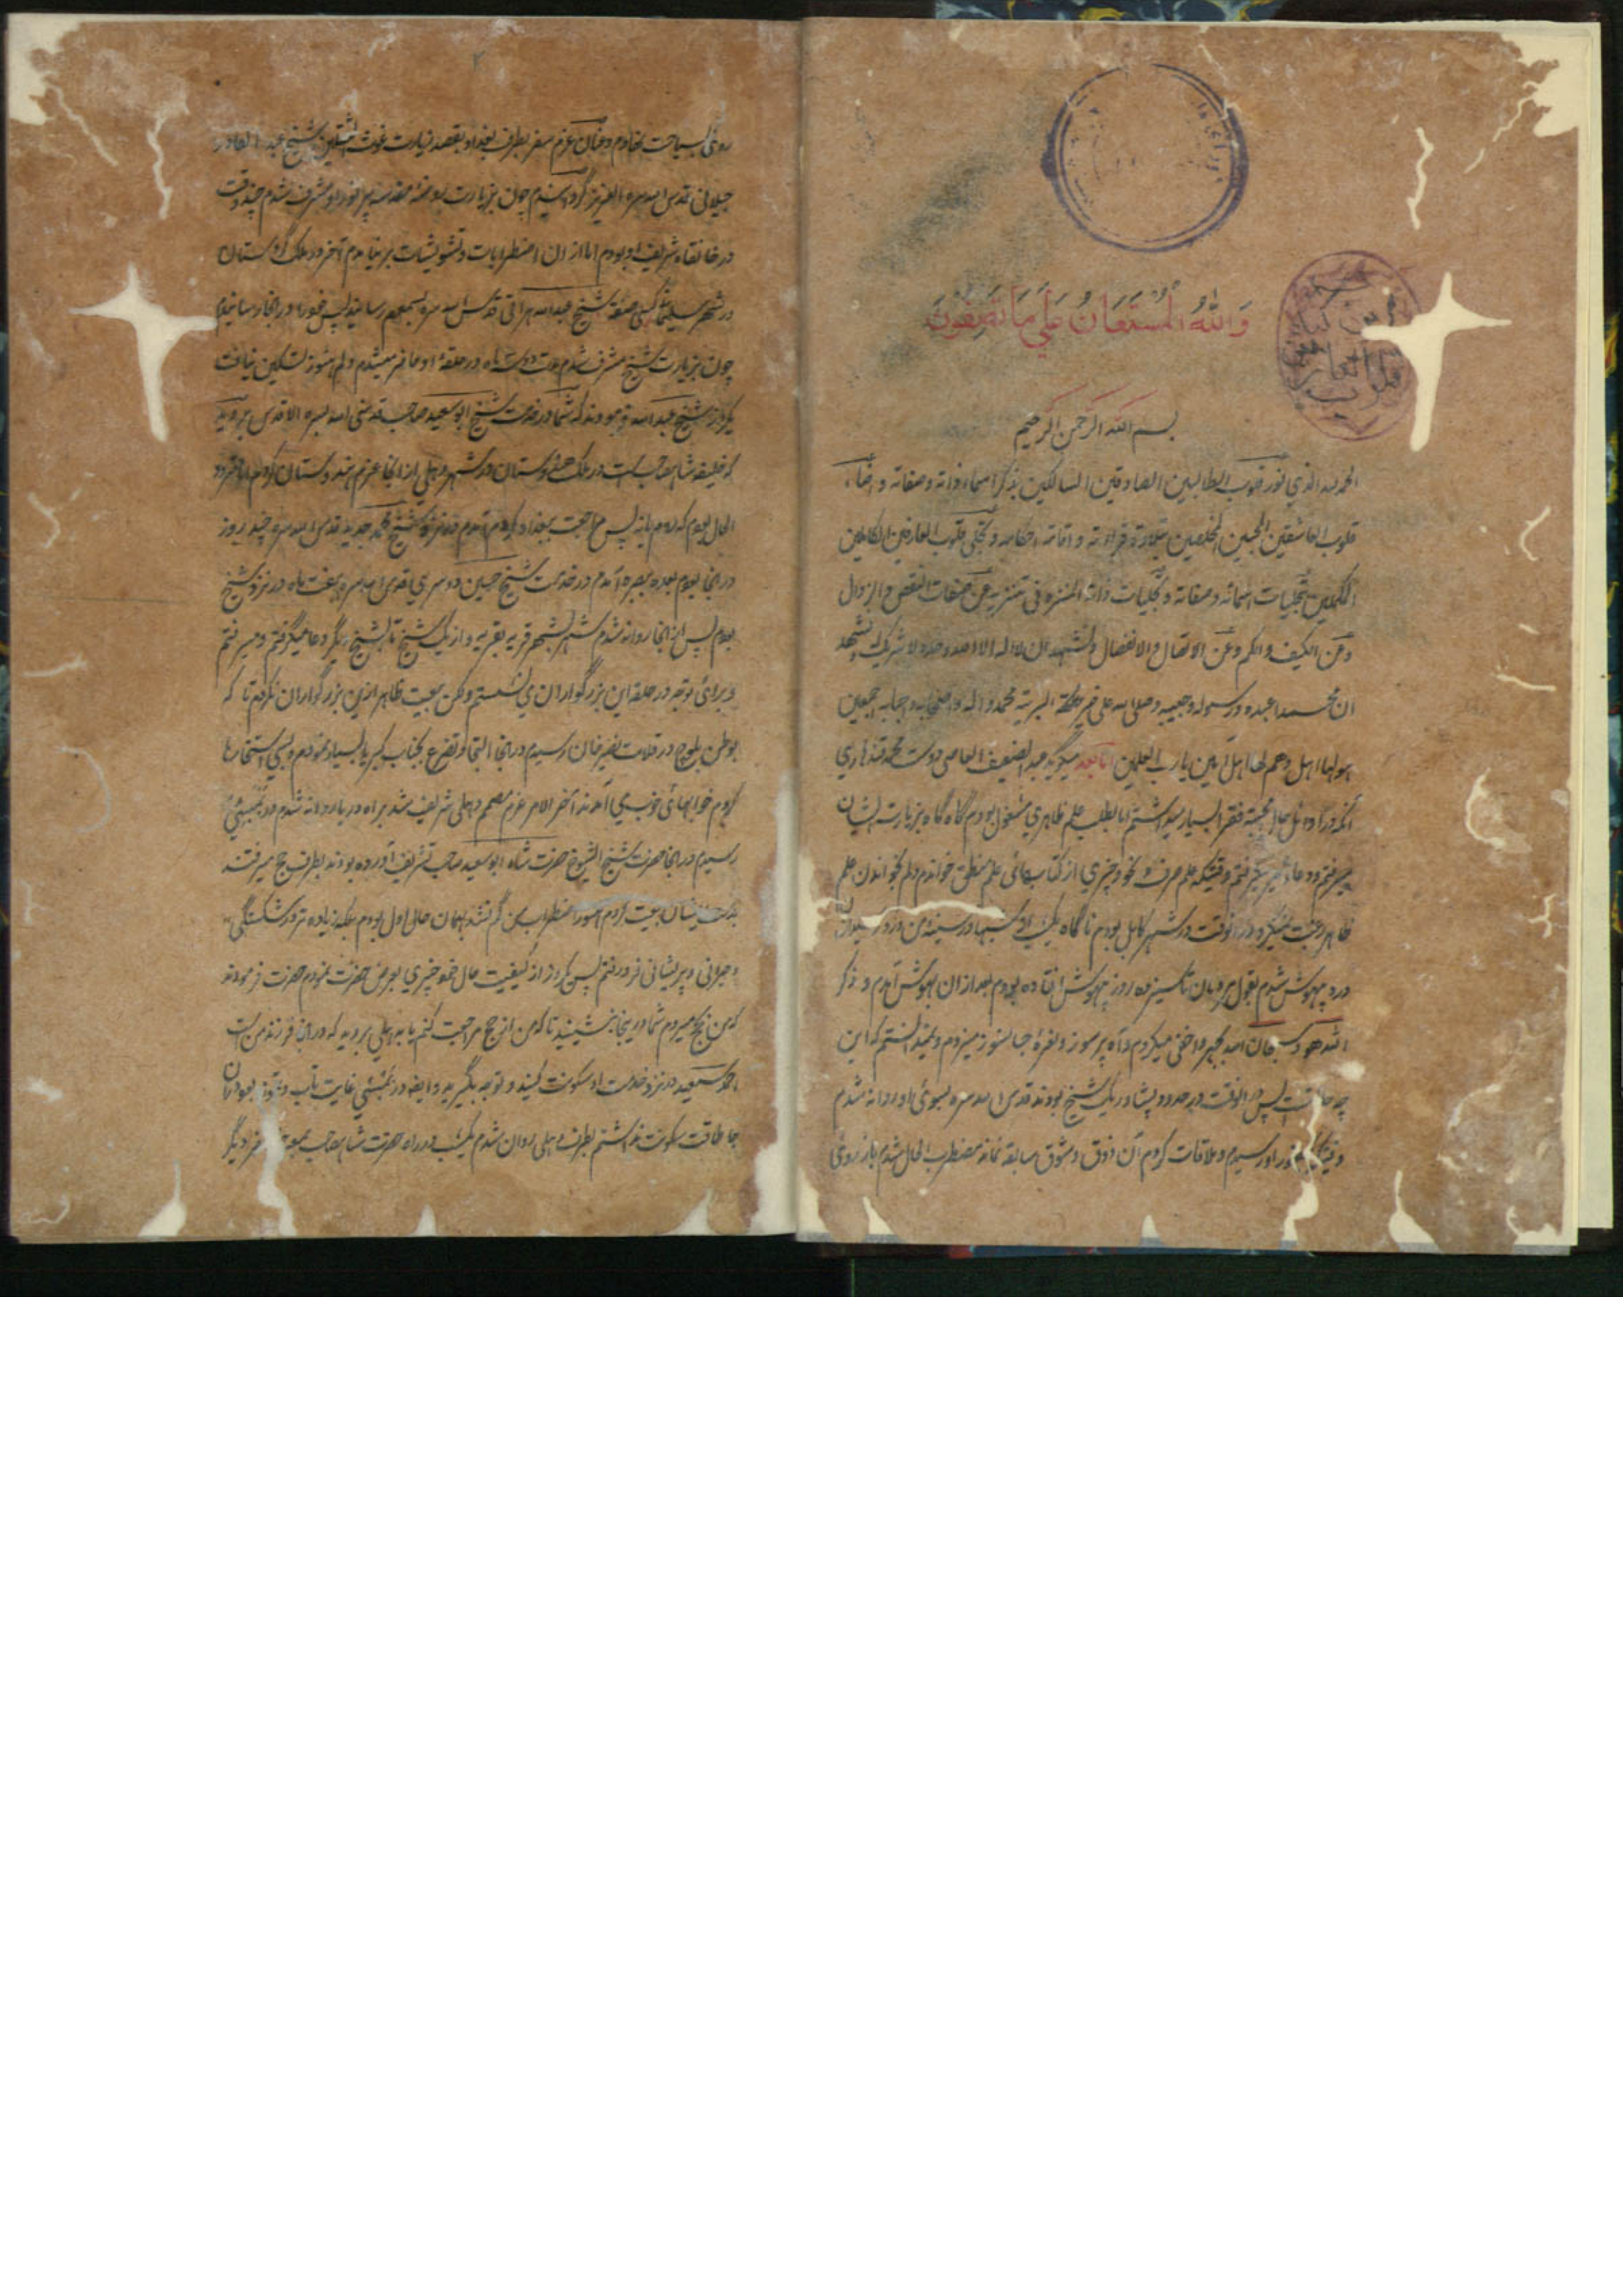 وَاللهُ المُستَعَانُ عَلَي مَا تَصِفُونَ
بسم الله الرحمن الرحيم
الحمد لله الذي نور قلوب الطالبين الصادقين السالكين بذكر اسماء ذاته وصفاته و
قلوب العاشقين المحبين المخلصين بتلاوة قراءته و احكامه و تجلى قلوب العارفين الكاملين
المكملين بتجليات اسمائه وصفاته و تجليات ذاته المنزه في تنزيه عن صفات النقص والزوال
وعن الكيف والكم وعن الاتصال والانفصال ونشهد ان لا اله الا الله وحده لا شريك له ونشهد
ان محمدا عبده ورسوله وحبيبه وصلى الله على خير البرية محمد و اله و اصحابه اجمعين
اهل وهم لها اهل آمين يارب العلمين اما بعد ميگويد عبد الضعيف العاصي دوست محمد قندهاري
محبت فقرا بسيار ميداشتم اما بطلب علم ظاهري مشغول بودم گاه گاه بزيارت ايشان
ميرفتم و دعاء خير ميگرفتم وقتيكه علم صرف و نحو و چيزي از كتابهائى علم منطق خواندم دلم بخواندن علم
ظاهر رغبت نميكرد در آنوقت در شهر كابل بودم ناگاه يك شبها در سينه من درد
درد بيهوش شدم بقول مردمان تا سيزده روز بيهوش افتاده بودم بعد ازان بهوش آمدم و ذكر
الله هو و سبحان الله بجهر و اخفى ميكردم و آه پر سوز و نعره جانسوز ميزدم و نميدانستم كه اين
چه حالت است پس در آنوقت در حدود پشاور يك شيخ بودند قدس الله سره بسوئ او روانه شدم
در نزد او رسيدم و ملاقات كردم آن ذوق و شوق سابقه نماند مضطرب الحال شدم باز روئ
روئ بسياحت نهادم و عنان عزم سفر بطرف بغداد بقصد زيارت غوث الثقلين شيخ عبد القادر
جيلاني قدس الله سره العزيز گردانيدم چون بزيارت روضه مقدسه پر نور او مشرف شدم چند وقت
در خانقاه شريف او بودم اما از ان اضطرابات و تشويشات بر نيامدم آخر در ملك كردستان
در شهر سليمانيه شيخ عبد الله هراتي قدس الله سره بسمعم رسانيد پس فورا در انجا رسانيدم
چون بزيارت شيخ مشرف شدم مدت ماه در حلقه او حاضر ميشدم دلم هنوز تسكين نيافت
يكروز شيخ عبد الله فرمودند كه شما در خدمت شيخ ابو سعيد صاحب قدسنى الله بسره الاقدس برويد
كه خليفه شاه صاحب است در ملك هندوستان در شهر دهلي از انجا عزم هندوستان كردم
الحال بودم كه روم يا نه پس مراجعت ببغداد كردم آمدم در نزد شيخ محمد جديد قدس الله سره چند روز
در انجا بودم بعده ببصره آمدم در خدمت شيخ حسين دوسري قدس الله سره هفت ماه در نزد شيخ
بودم پس از انجا روانه شدم شهر بشهر قريه بقريه و از يك شيخ تا بشيخ ديگر دعا ميگرفتم و ميرفتم
و برائ توجه در حلقه اين بزرگواران مي نشستم و لكن بيعت ظاهر ازين بزرگواران نكردم تا كه
بوطن بلوچ در قلات نصير خان رسيدم در انجا التجا و تضرع بجناب كبريا بسيار نمودم و بسي استخارها
كردم خوابهائ خوب مي آمدند آخر الامر عزم مصمم دهلي شريف شد براه دريا روانه شدم در بمبئي
رسيدم در انجا حضرت شيخ الشيوخ حضرت شاه ابو سعيد صاحب تشريف آورده بودند بطرف حج ميرفتند
بدست ايشان بيعت كردم اضطراب من كم نشد بهمان حال اول بودم بلكه زياده تر در شكستگي
و حيراني و پريشاني فرو رفتم پس يكروز از كيفيت حال خود چيزي بعرض حضرت نمودم حضرت فرمودند
كه من بحج ميروم شما در اينجا بنشينيد تا كه من از حج مراجعت كنم يا به دهلي برويد كه در انجا فرزند من است
احمد سعيد در نزد خدمت او سكونت كنيد و توجه بگيريد در بمبئي
جا طاقت سكونت نداشتم بطرف دهلي روان شدم يكشب در راه حضرت شاه صاحب